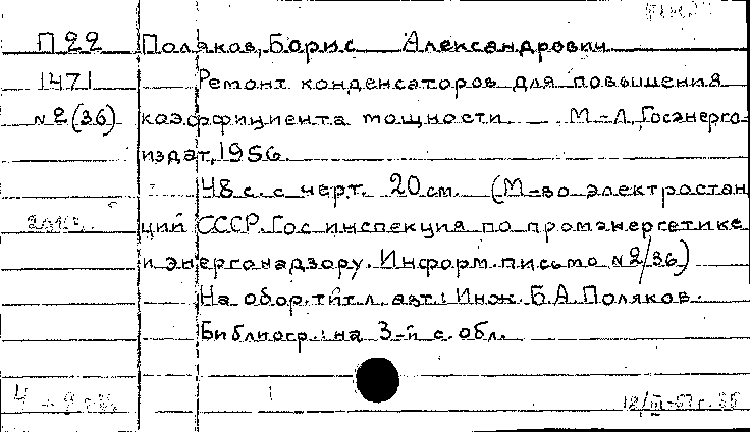 П 22 Поляков, Борис Александрович
1471 Ремонт конденсаторов для повышения
№2(36) коэффициента мощности. М-Л, Госэнерго-
издат, 1956.
48 с. с черт. 20 см. (М-во электростан
ций СССР. Гос инспекция по промэнергетике
и энергонадзору. Информ. письмо №2/36)
На обор. тит. л. авт.: Инж. Б. А. Поляков.
Библиогр.: на 3-й с. обл.
4